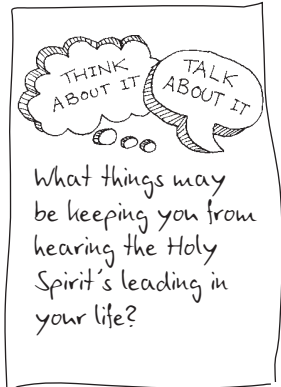 THINK
ABOUT IT
TALK
ABOUT IT
What things may
be keeping you from
hearing the Holy
Spirit's leading in
your life?